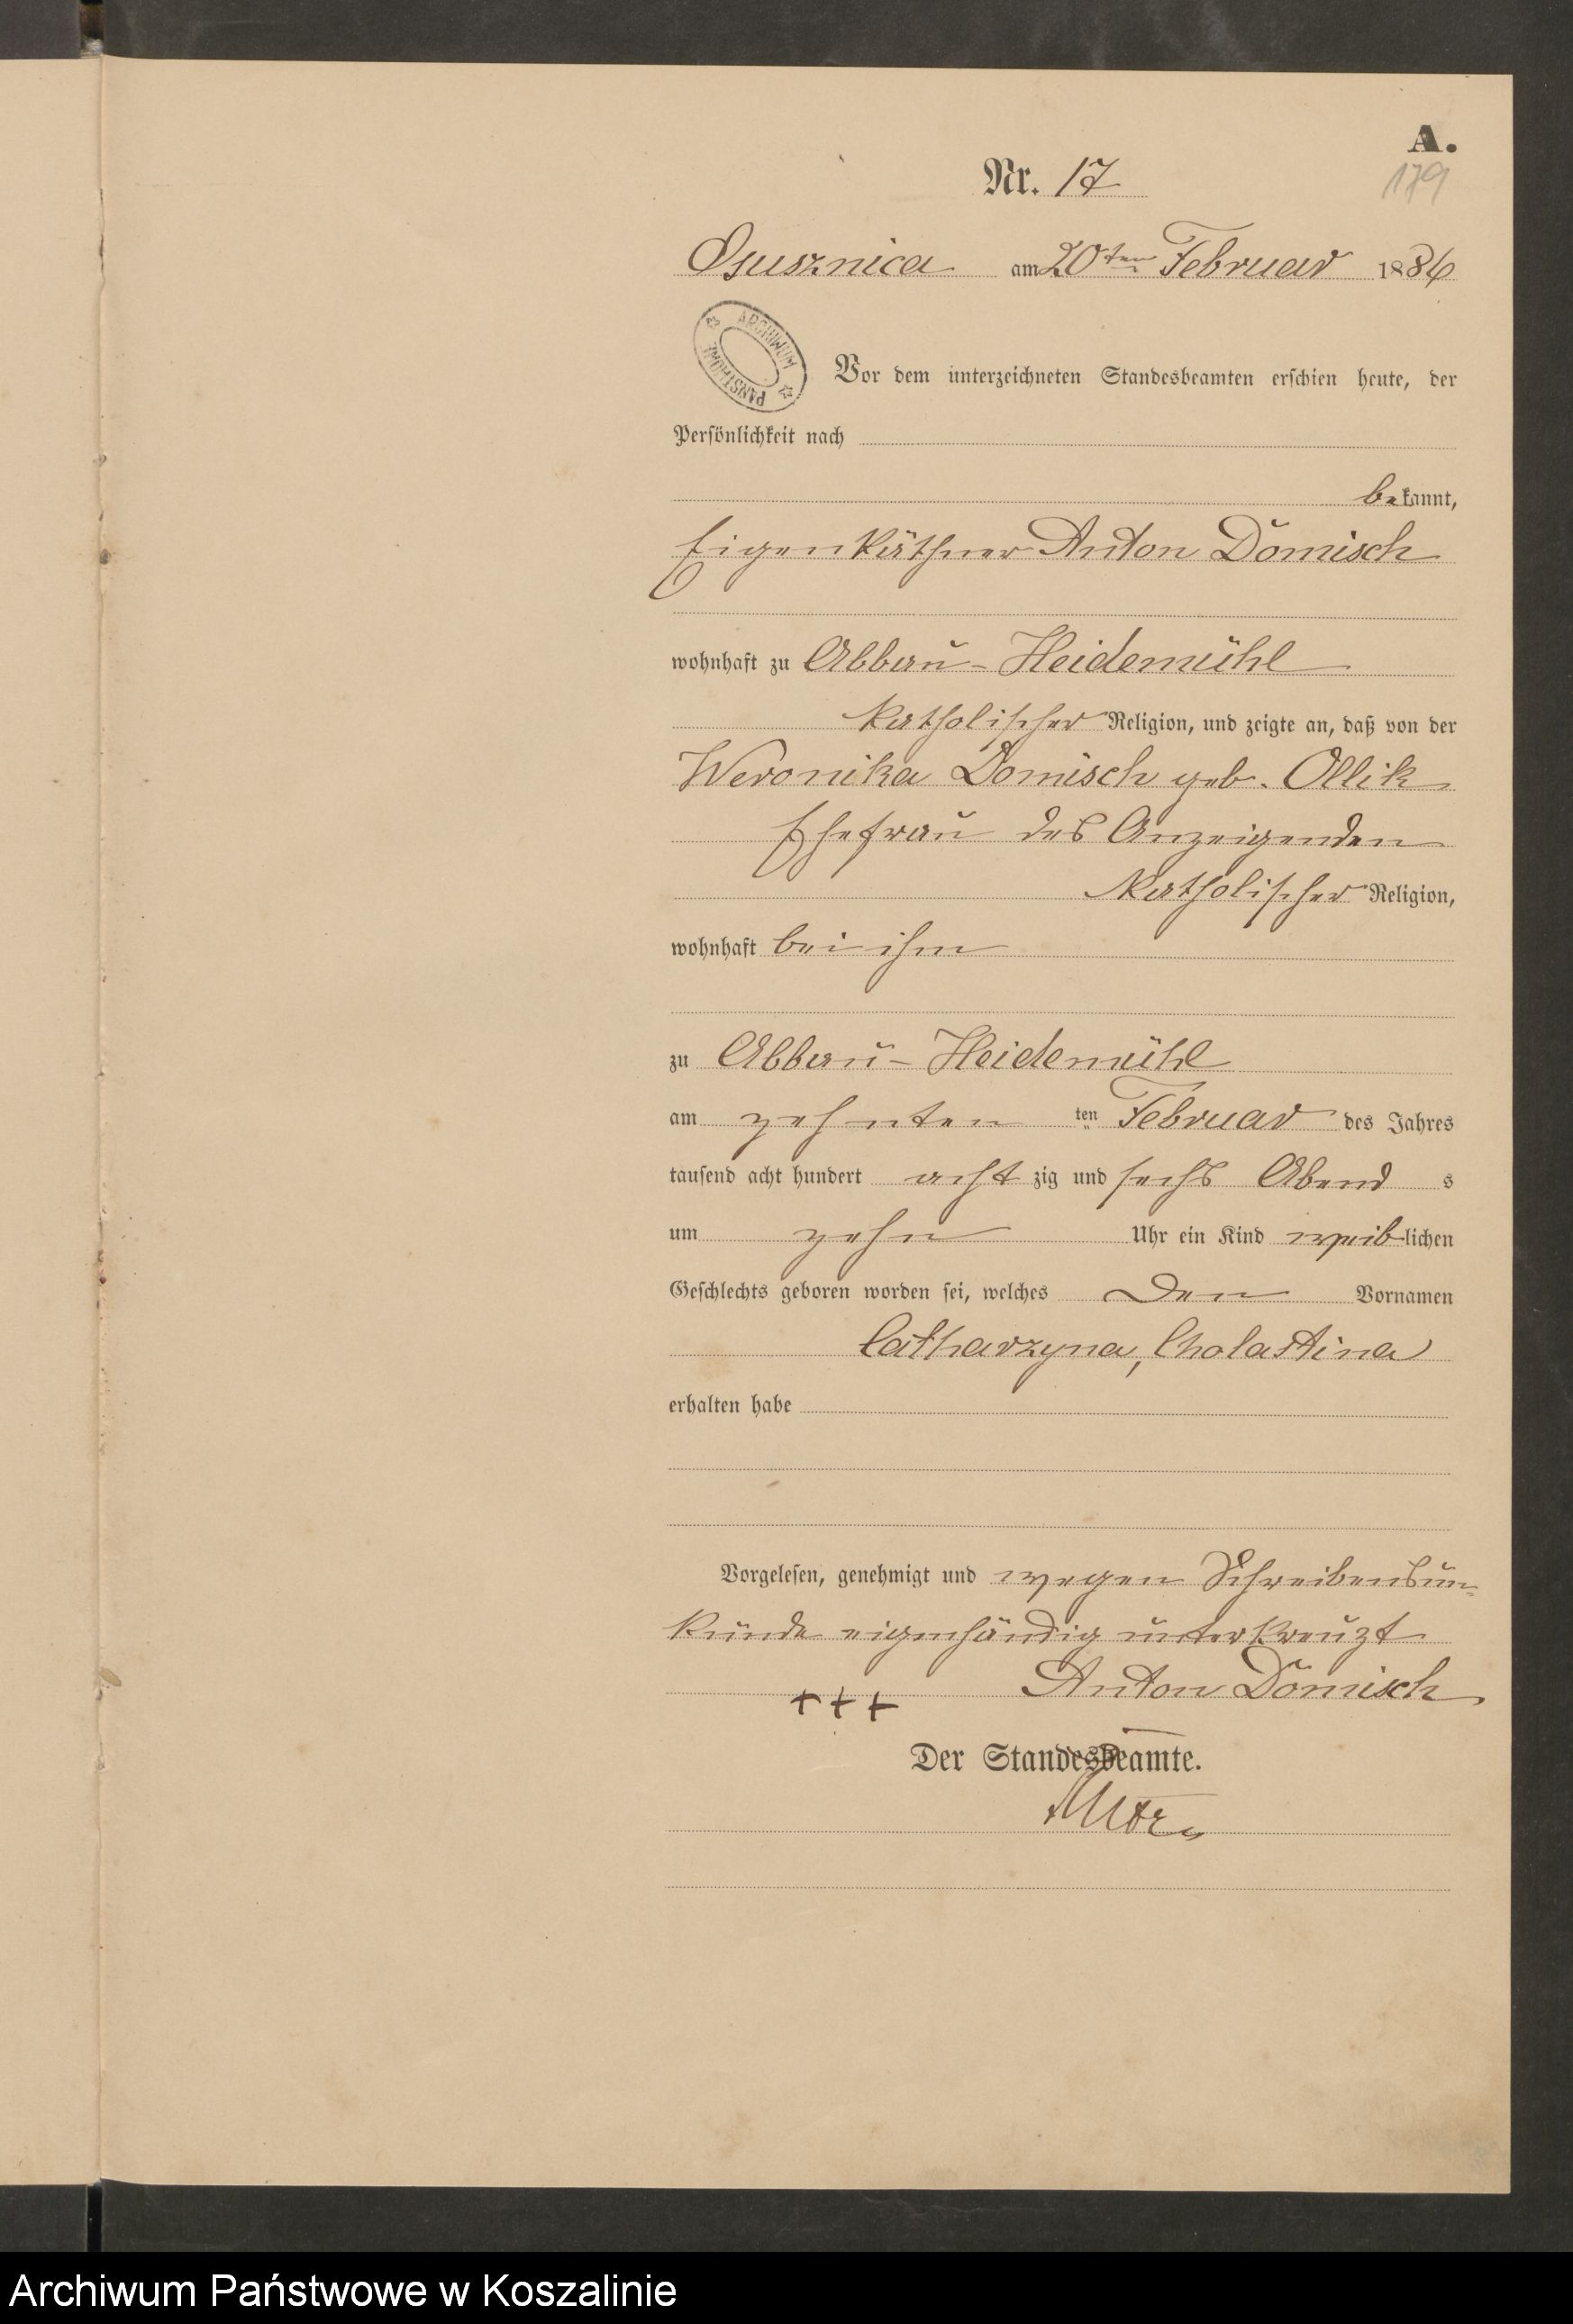 A.
179
Nr. 17
Osusznica am 20ten Februar 1886
ARCHIWUM PAŃSTWOWE
Vor dem unterzeichneten Standesbeamten erschien heute, der
Persönlichkeit nach
bekannt,
Eigenkäthner Anton Domisch
wohnhaft zu Abbau-Heidemühl
katholischer Religion, und zeigte an, daß von der
Weronika Domisch geb. Ollik
Ehefrau des Anzeigenden
katholischer Religion,
wohnhaft bei ihm
zu Abbau-Heidemühl
am zehnten ten Februar des Jahres
tausend acht hundert acht zig und sechs Abend s
um zehn Uhr ein Kind weiblichen
Geschlechts geboren worden sei, welches den Vornamen
Catharzyna, Cholastina
erhalten habe
Vorgelesen, genehmigt und wegen Schreibensun-
kunde eigenhändig unterkreuzt
+++ Anton Domisch
Der Standesbeamte.
Archiwum Państwowe w Koszalinie